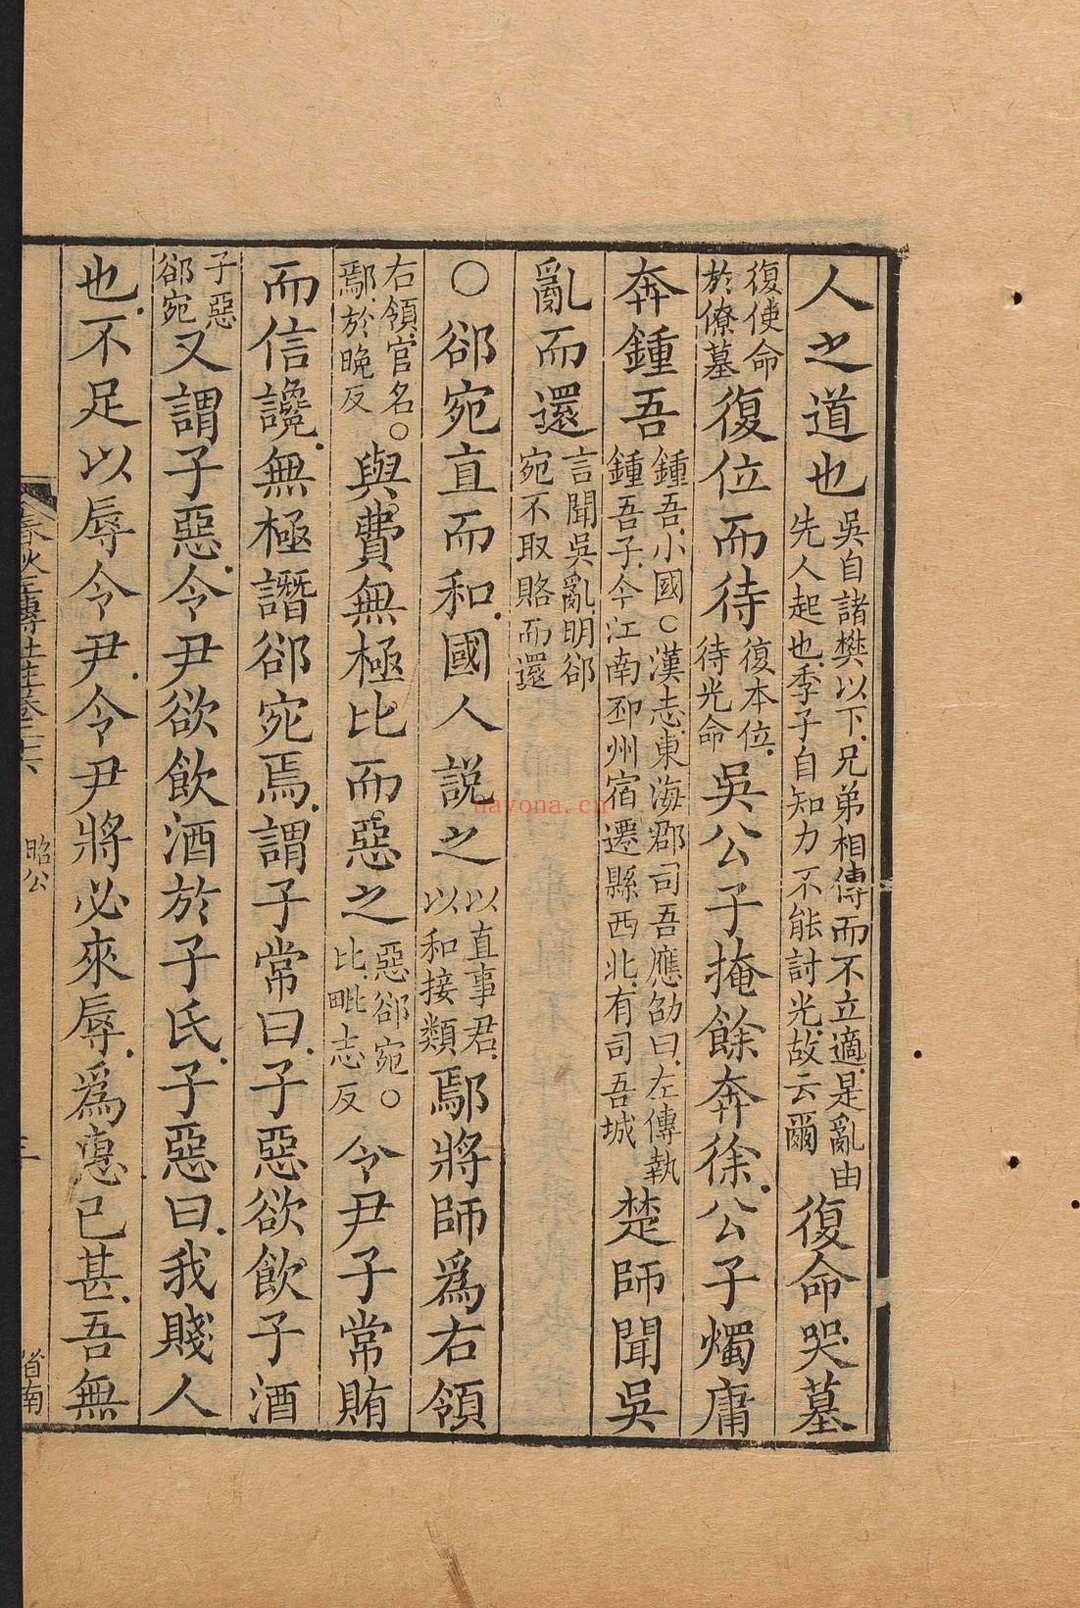 人之道也吳自諸樊以下兄弟相傳而不立適是亂由先人起也季子自知力不能討光故云爾復命哭墓
復使命於僚墓復位而待復本位待光命吳公子掩餘奔徐公子燭庸
奔鍾吾鍾吾小國○漢志東海郡司吾應劭曰左傳執鍾吾子今江南邳州宿遷縣西北有司吾城楚師聞吳
亂而還言聞吳亂明郤宛不取賂而還
○郤宛直而和國人說之以直事君以和接類鄢將師爲右領
右領官名○鄢於晚反與費無極比而惡之惡郤宛○比毗志反令尹子常賄
而信讒無極譖郤宛焉謂子常曰子惡欲飲子酒
子惡郤宛又謂子惡令尹欲飲酒於子氏子惡曰我賤人
也不足以辱令尹令尹將必來辱爲惠已甚吾無
春秋左傳杜注卷二十六 昭公 三
nayona.cn